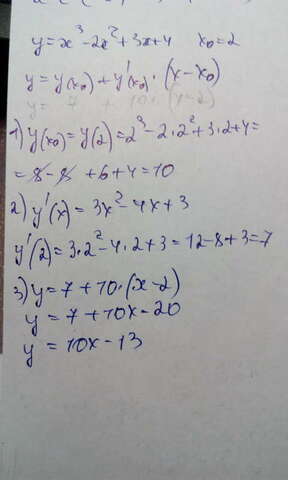 y=x³-2x²+3x+4 x₀=2
y=y(x₀)+y'(x₀)·(x-x₀)
y= 7 + 10·(x-2)
1) y(x₀)=y(2)=2³-2·2²+3·2+4=
=8-8+6+4=10
2) y'(x)=3x²-4x+3
y'(2)=3·2²-4·2+3=12-8+3=7
3) y=7+10·(x-2)
y=7+10x-20
y=10x-13